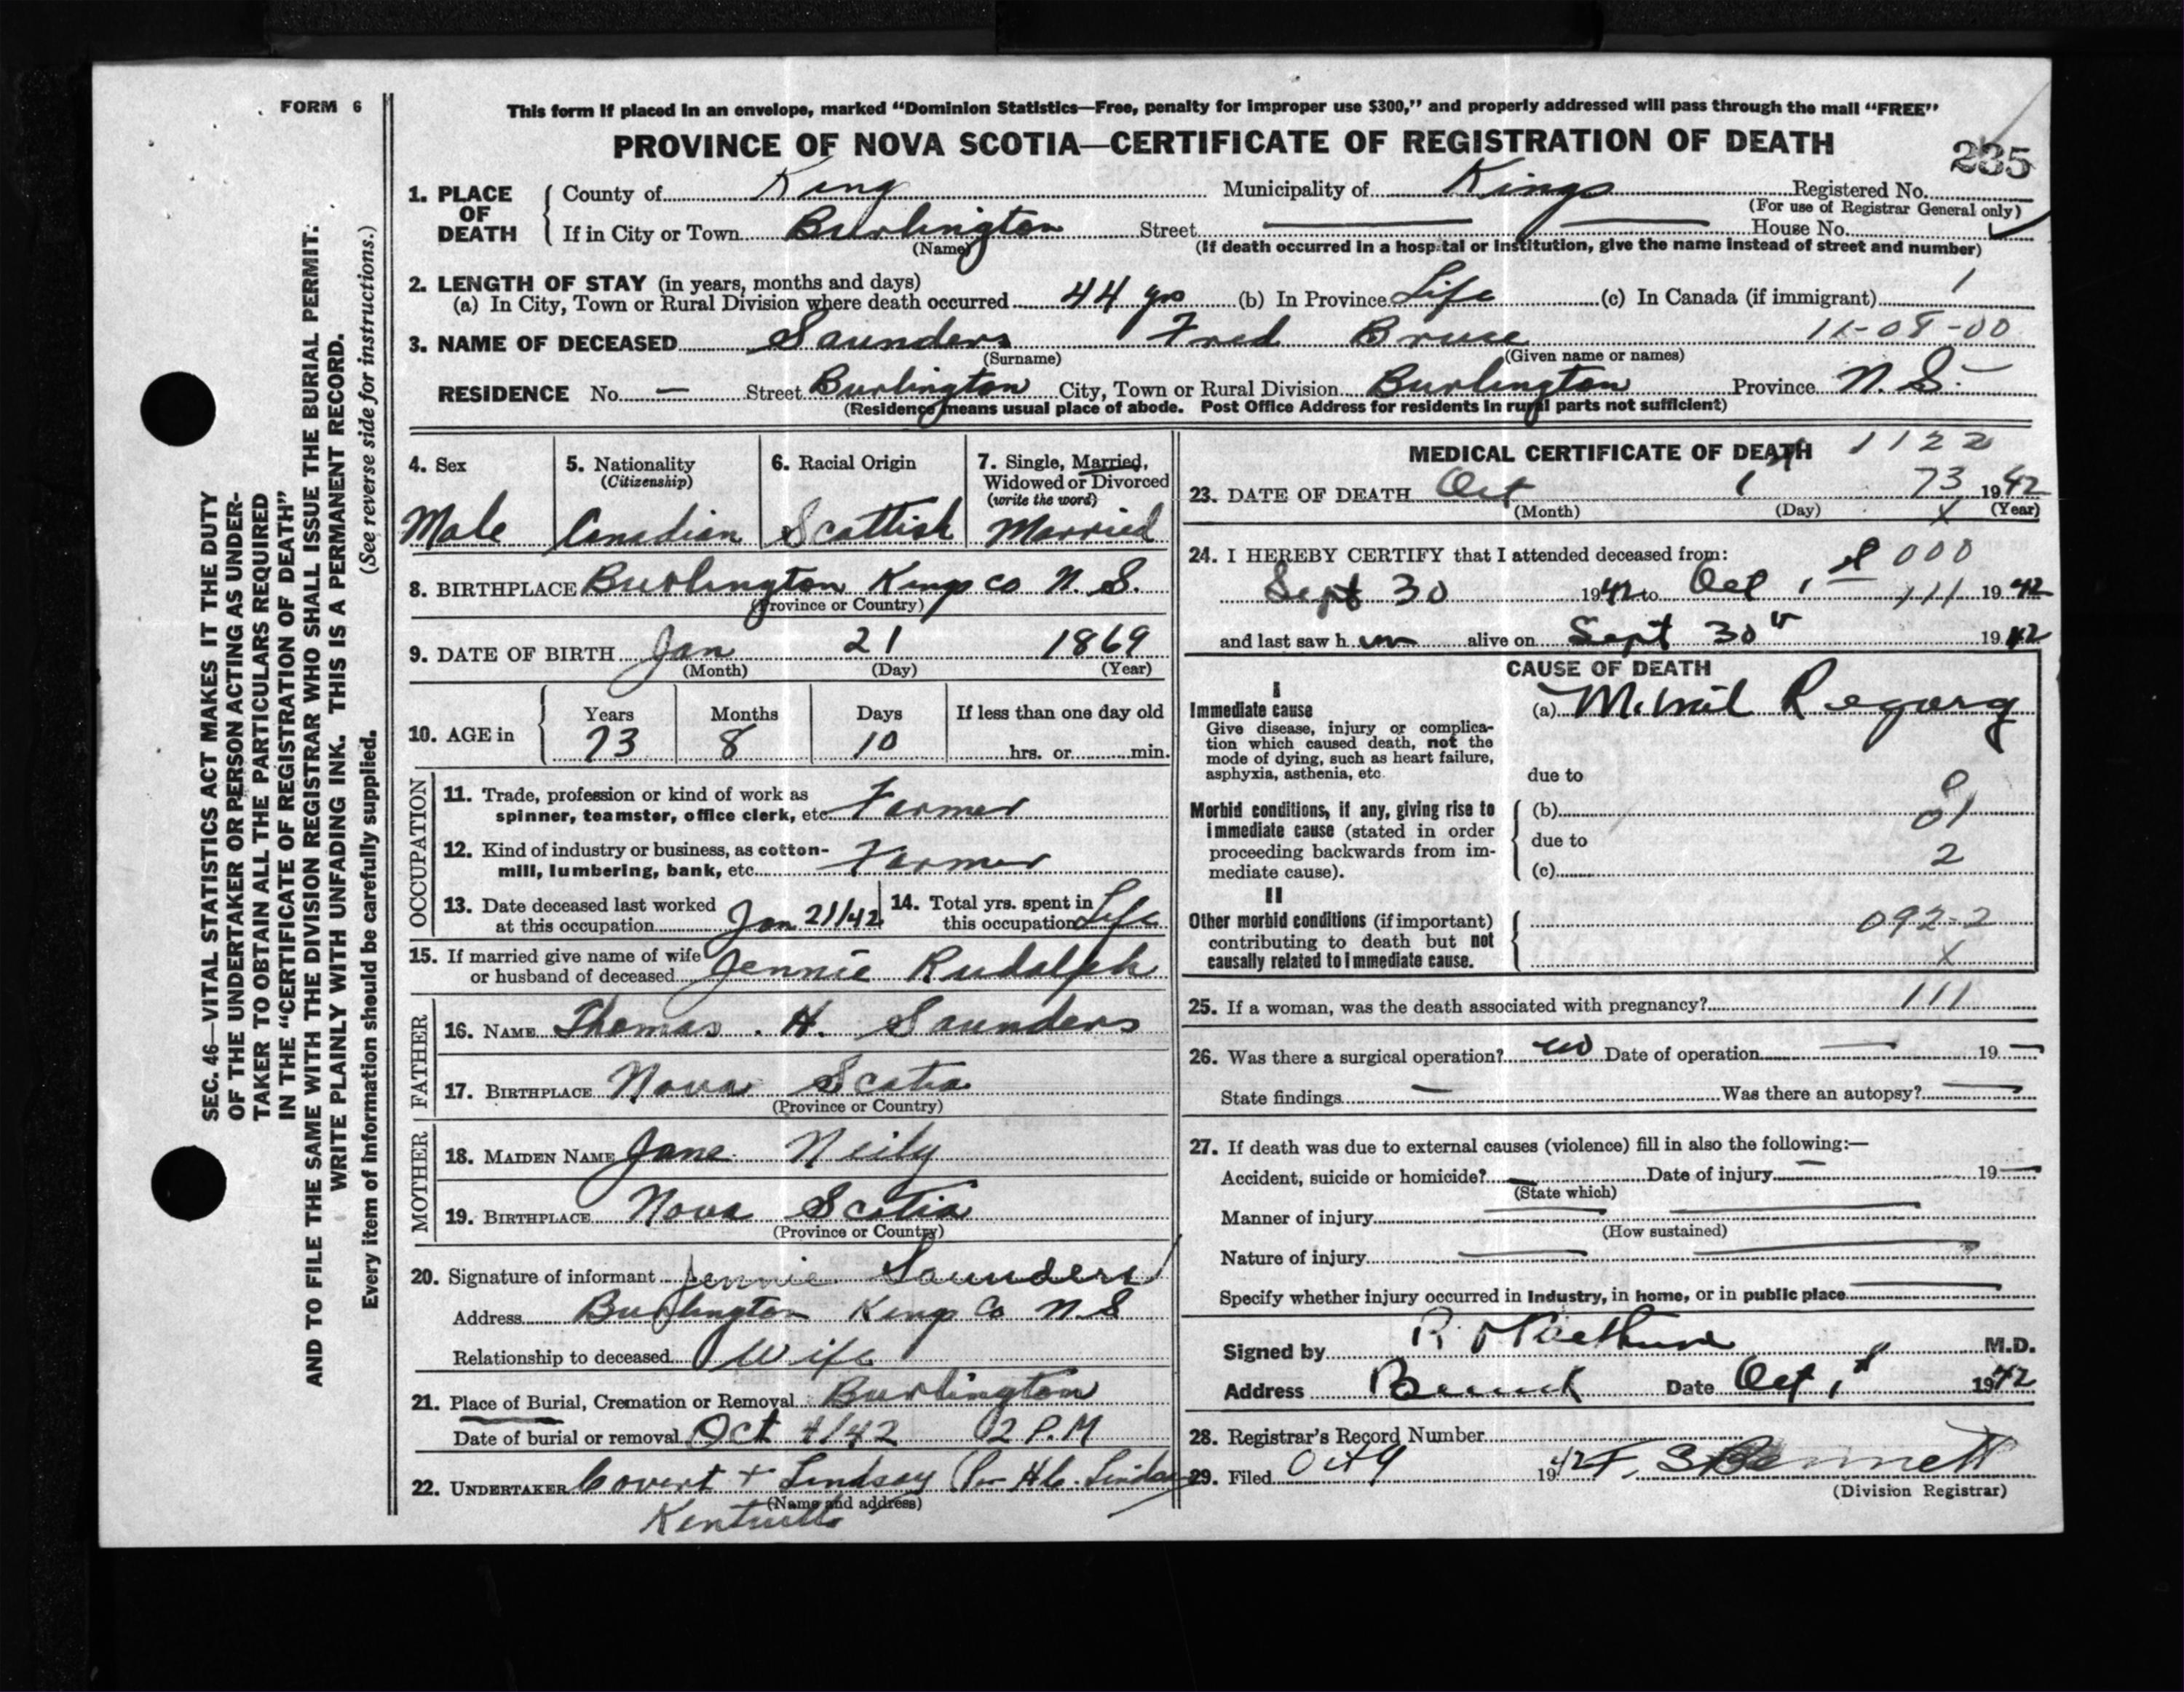 FORM 6
This form if placed in an envelope, marked "Dominion Statistics—Free, penalty for improper use $300," and properly addressed will pass through the mail "FREE"
PROVINCE OF NOVA SCOTIA—CERTIFICATE OF REGISTRATION OF DEATH
235
1. PLACE OF DEATH County of King Municipality of Kings Registered No.
(For use of Registrar General only)
If in City or Town Burlington Street House No.
(Name) (If death occurred in a hospital or institution, give the name instead of street and number)
2. LENGTH OF STAY (in years, months and days)
(a) In City, Town or Rural Division where death occurred 44 yrs (b) In Province Life (c) In Canada (if immigrant) 1
3. NAME OF DECEASED Saunders Fred Bruce 11-08-00
(Surname) (Given name or names)
RESIDENCE No. — Street Burlington City, Town or Rural Division Burlington Province N. S.
(Residence means usual place of abode. Post Office Address for residents in rural parts not sufficient)
SEC. 46—VITAL STATISTICS ACT MAKES IT THE DUTY
OF THE UNDERTAKER OR PERSON ACTING AS UNDER-
TAKER TO OBTAIN ALL THE PARTICULARS REQUIRED
IN THE "CERTIFICATE OF REGISTRATION OF DEATH"
AND TO FILE THE SAME WITH THE DIVISION REGISTRAR WHO SHALL ISSUE THE BURIAL PERMIT.
WRITE PLAINLY WITH UNFADING INK. THIS IS A PERMANENT RECORD.
Every item of information should be carefully supplied. (See reverse side for instructions.)
4. Sex 5. Nationality 6. Racial Origin 7. Single, Married,
(Citizenship) Widowed or Divorced
(write the word)
Male Canadian Scottish Married
8. BIRTHPLACE Burlington Kings Co N. S.
(Province or Country)
9. DATE OF BIRTH Jan 21 1869
(Month) (Day) (Year)
10. AGE in Years Months Days If less than one day old
73 8 10 hrs. or min.
OCCUPATION
11. Trade, profession or kind of work as
spinner, teamster, office clerk, etc. Farmer
12. Kind of industry or business, as cotton-
mill, lumbering, bank, etc. Farmer
13. Date deceased last worked
at this occupation Jan 21/42
14. Total yrs. spent in
this occupation Life
15. If married give name of wife
or husband of deceased Jennie Rudolph
FATHER
16. NAME Thomas . H. Saunders
17. BIRTHPLACE Nova Scotia
(Province or Country)
MOTHER
18. MAIDEN NAME Jane Neily
19. BIRTHPLACE Nova Scotia
(Province or Country)
20. Signature of informant Jennie Saunders
Address Burlington Kings Co N S
Relationship to deceased Wife
21. Place of Burial, Cremation or Removal Burlington
Date of burial or removal Oct 4/42 2 P.M
22. UNDERTAKER Covert + Lindsay (Per H C. Lindsay
(Name and address)
Kentville
MEDICAL CERTIFICATE OF DEATH 1122
23. DATE OF DEATH Oct 1 73 1942
(Month) (Day) X (Year)
24. I HEREBY CERTIFY that I attended deceased from: 000
Sept 30 1942 to Oct 1 111 1942
and last saw h im alive on Sept 30 1942
CAUSE OF DEATH
I
Immediate cause
Give disease, injury or complica-
tion which caused death, not the
mode of dying, such as heart failure,
asphyxia, asthenia, etc.
(a) Mitral Regurg
due to
Morbid conditions, if any, giving rise to
immediate cause (stated in order
proceeding backwards from im-
mediate cause).
(b) 01
due to
2
(c)
II
Other morbid conditions (if important)
contributing to death but not
causally related to immediate cause.
092-2
X
25. If a woman, was the death associated with pregnancy? 111
26. Was there a surgical operation? no Date of operation — 19 —
State findings — Was there an autopsy? —
27. If death was due to external causes (violence) fill in also the following:—
Accident, suicide or homicide? — Date of injury — 19 —
(State which)
Manner of injury
(How sustained)
Nature of injury
Specify whether injury occurred in industry, in home, or in public place
Signed by M.D.
Address Berwick Date Oct 1st 1942
28. Registrar's Record Number
29. Filed Oct 9 1942 F. S Bennett
(Division Registrar)